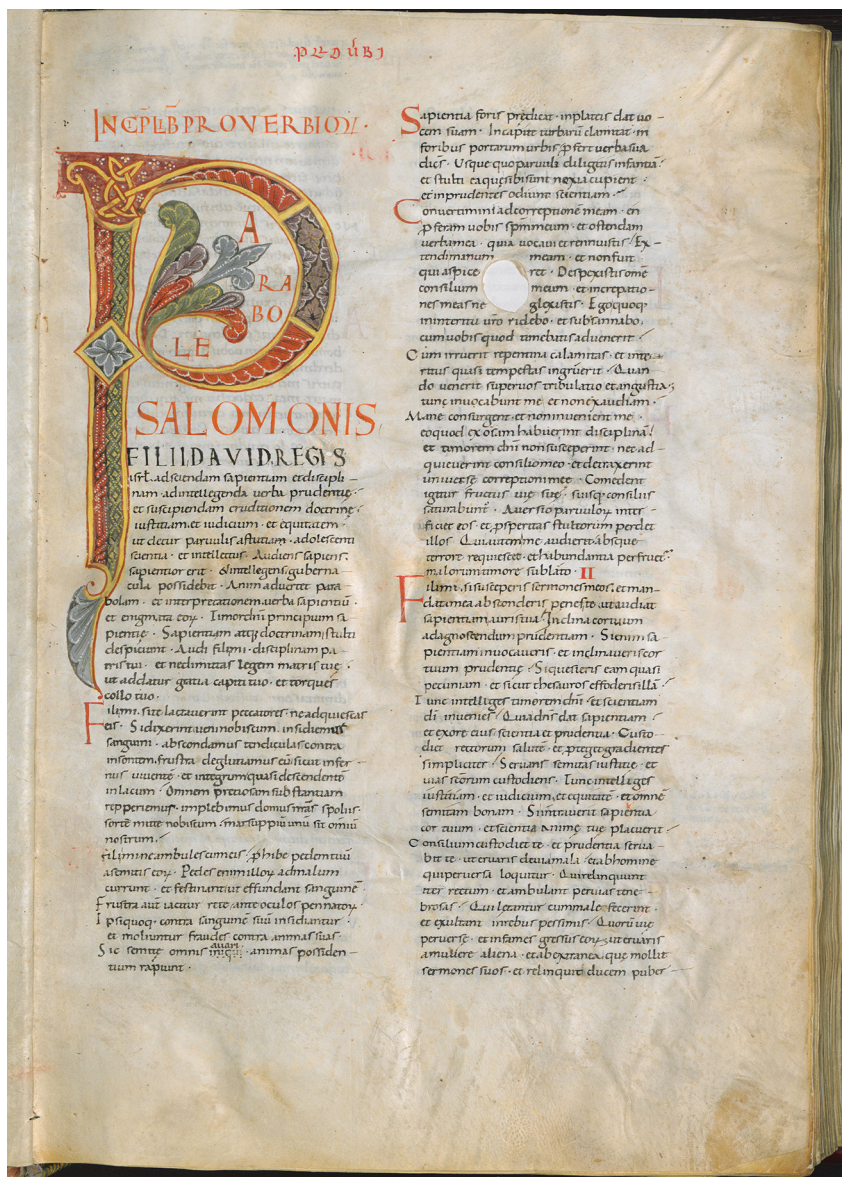 INCIPLIBPROVERBIOꝜ·
PARABOLE
SALOMONIS
FILII·DAVID·REGIS
isrl·ad sciendam sapientiam et discipli-
nam·ad intellegenda verba prudentię·
et suscipiendam eruditionem doctrinę
iustitiam·et iudicium·et equitatem·
ut detur parvulis astutiam·adolescenti
scientia·et intellectus·Audiens sapiens·
sapientior erit·&intellegens·guberna-
cula possidebit·Animadvertet para
bolam·et interpretationem·verba sapientiū·
et enigmata eoꝝ·Timor dn̄i principium sa-
pientię·Sapientiam atq; doctrinam stulti
despiciunt·Audi fili mi·disciplinam pa-
tris tui·et ne dimittas legem matris tuę·
ut addatur gratia capiti tuo·et torques
collo tuo·
Fili mi·si te lactaverint peccatores·ne adquiescas
eis·Si dixerint veni nobiscum·insidiemur
sanguini·abscondamus tendiculas contra
insontem·frustra deglutiamus eū sicut infer-
nus viventē·et integrum quasi descendentē
in lacum·Omnem pretiosam substantiam
repperiemus·implebimus domus nr̄as spoliis·
sortē mitte nobiscum·marsuppiū unū sit omniū
nostrum·
Fili mi ne ambules cum eis·ꝓhibe pedem tuū
a semitis eoꝝ·Pedes enim illoꝝ ad malum
currunt·et festinant ut effundant sanguinē·
Frustra aut̄ iacitur rete ante oculos pennatoꝝ·
Ipsi quoq·contra sanguinē suū insidiantur·
et moliuntur fraudes contra animas suas·
Sic semitę omnis avari·animas possiden-
tium rapiunt·
Sapientia foris predicat·in plateis dat vo-
cem suam·In capite turbarū clamitat·in
foribus portarum urbis ꝓfert verba sua
dicēs·Usque quo parvuli diligitis infantiā·
et stulti ea quę sibi sunt noxia cupient·
et inprudentes odiunt scientiam·
Convertimini ad correptionē meam·en
ꝓferam vobis spm̄ meum·et ostendam
verba mea·quia vocavi et rennuistis·Ex-
tendi manum meam·et non fuit
qui aspiceret·Despexistis omē
consilium meum·et increpatio-
nes meas neglexistis·Ego quoq
in interitu vr̄o ridebo·et subsannabo·
cum vobis quod timebatis advenerit·
Cum irruerit repentina calamitas·et inte-
ritus quasi tempestas ingruerit·Quan-
do venerit super vos tribulatio et angustia;
tunc invocabunt me et non exaudiam·
Mane consurgent·et non invenient me·
eo quod exosam habuerint disciplinā·
et timorem dn̄i non susceperint·nec ad-
quieverint consilio meo·et detraxerint
universę correptioni meę·Comedent
igitur fructus vię suę·suisq consiliis
saturabunt̄·Aversio parvuloꝝ inter-
ficiet eos·et ꝓsperitas stultorum perdet
illos·Qui autem me audierit absque
terrore requiescet·et habundantia perfruet̄
malorum timore sublato· II
Fili mi·si susceperis sermones meos·et man-
data mea absconderis penes te·ut audiat
sapientiam auris tua·Inclina cor tuum
ad agnoscendum prudentiam·Si enim sa-
pientiam invocaveris·et inclinaveris cor
tuum prudentię·Si quesieris eam quasi
pecuniam·et sicut thesauros effoderis illā·
Tunc intelliges timorem dn̄i·et scientiam
dī invenies·Quia dn̄s dat sapientiam
et ex ore eius scientia et prudentia·Custo-
diet rectorum salutē·et ꝓteget gradientes
simpliciter·Servans semitas iustitię·et
vias sc̄orum custodiens·Tunc intelliges
iustitiam·et iudicium·et equitatē·et omnē
semitam bonam·Si intraverit sapientia
cor tuum·et scientia animę tuę placuerit·
Consilium custodiet te·et prudentia serva-
bit te·ut eruaris de via mala·et ab homine
qui perversa loquitur·Qui relinquunt
iter rectum·et ambulant per vias tene-
brosas·Qui lętantur cum male fecerint·
et exultant in rebus pessimis·Quorū vię
perversę·et infames gressus eoꝝ·ut eruaris
a muliere aliena·et ab extranea·quę mollit
sermones suos·et relinquit ducem puber-